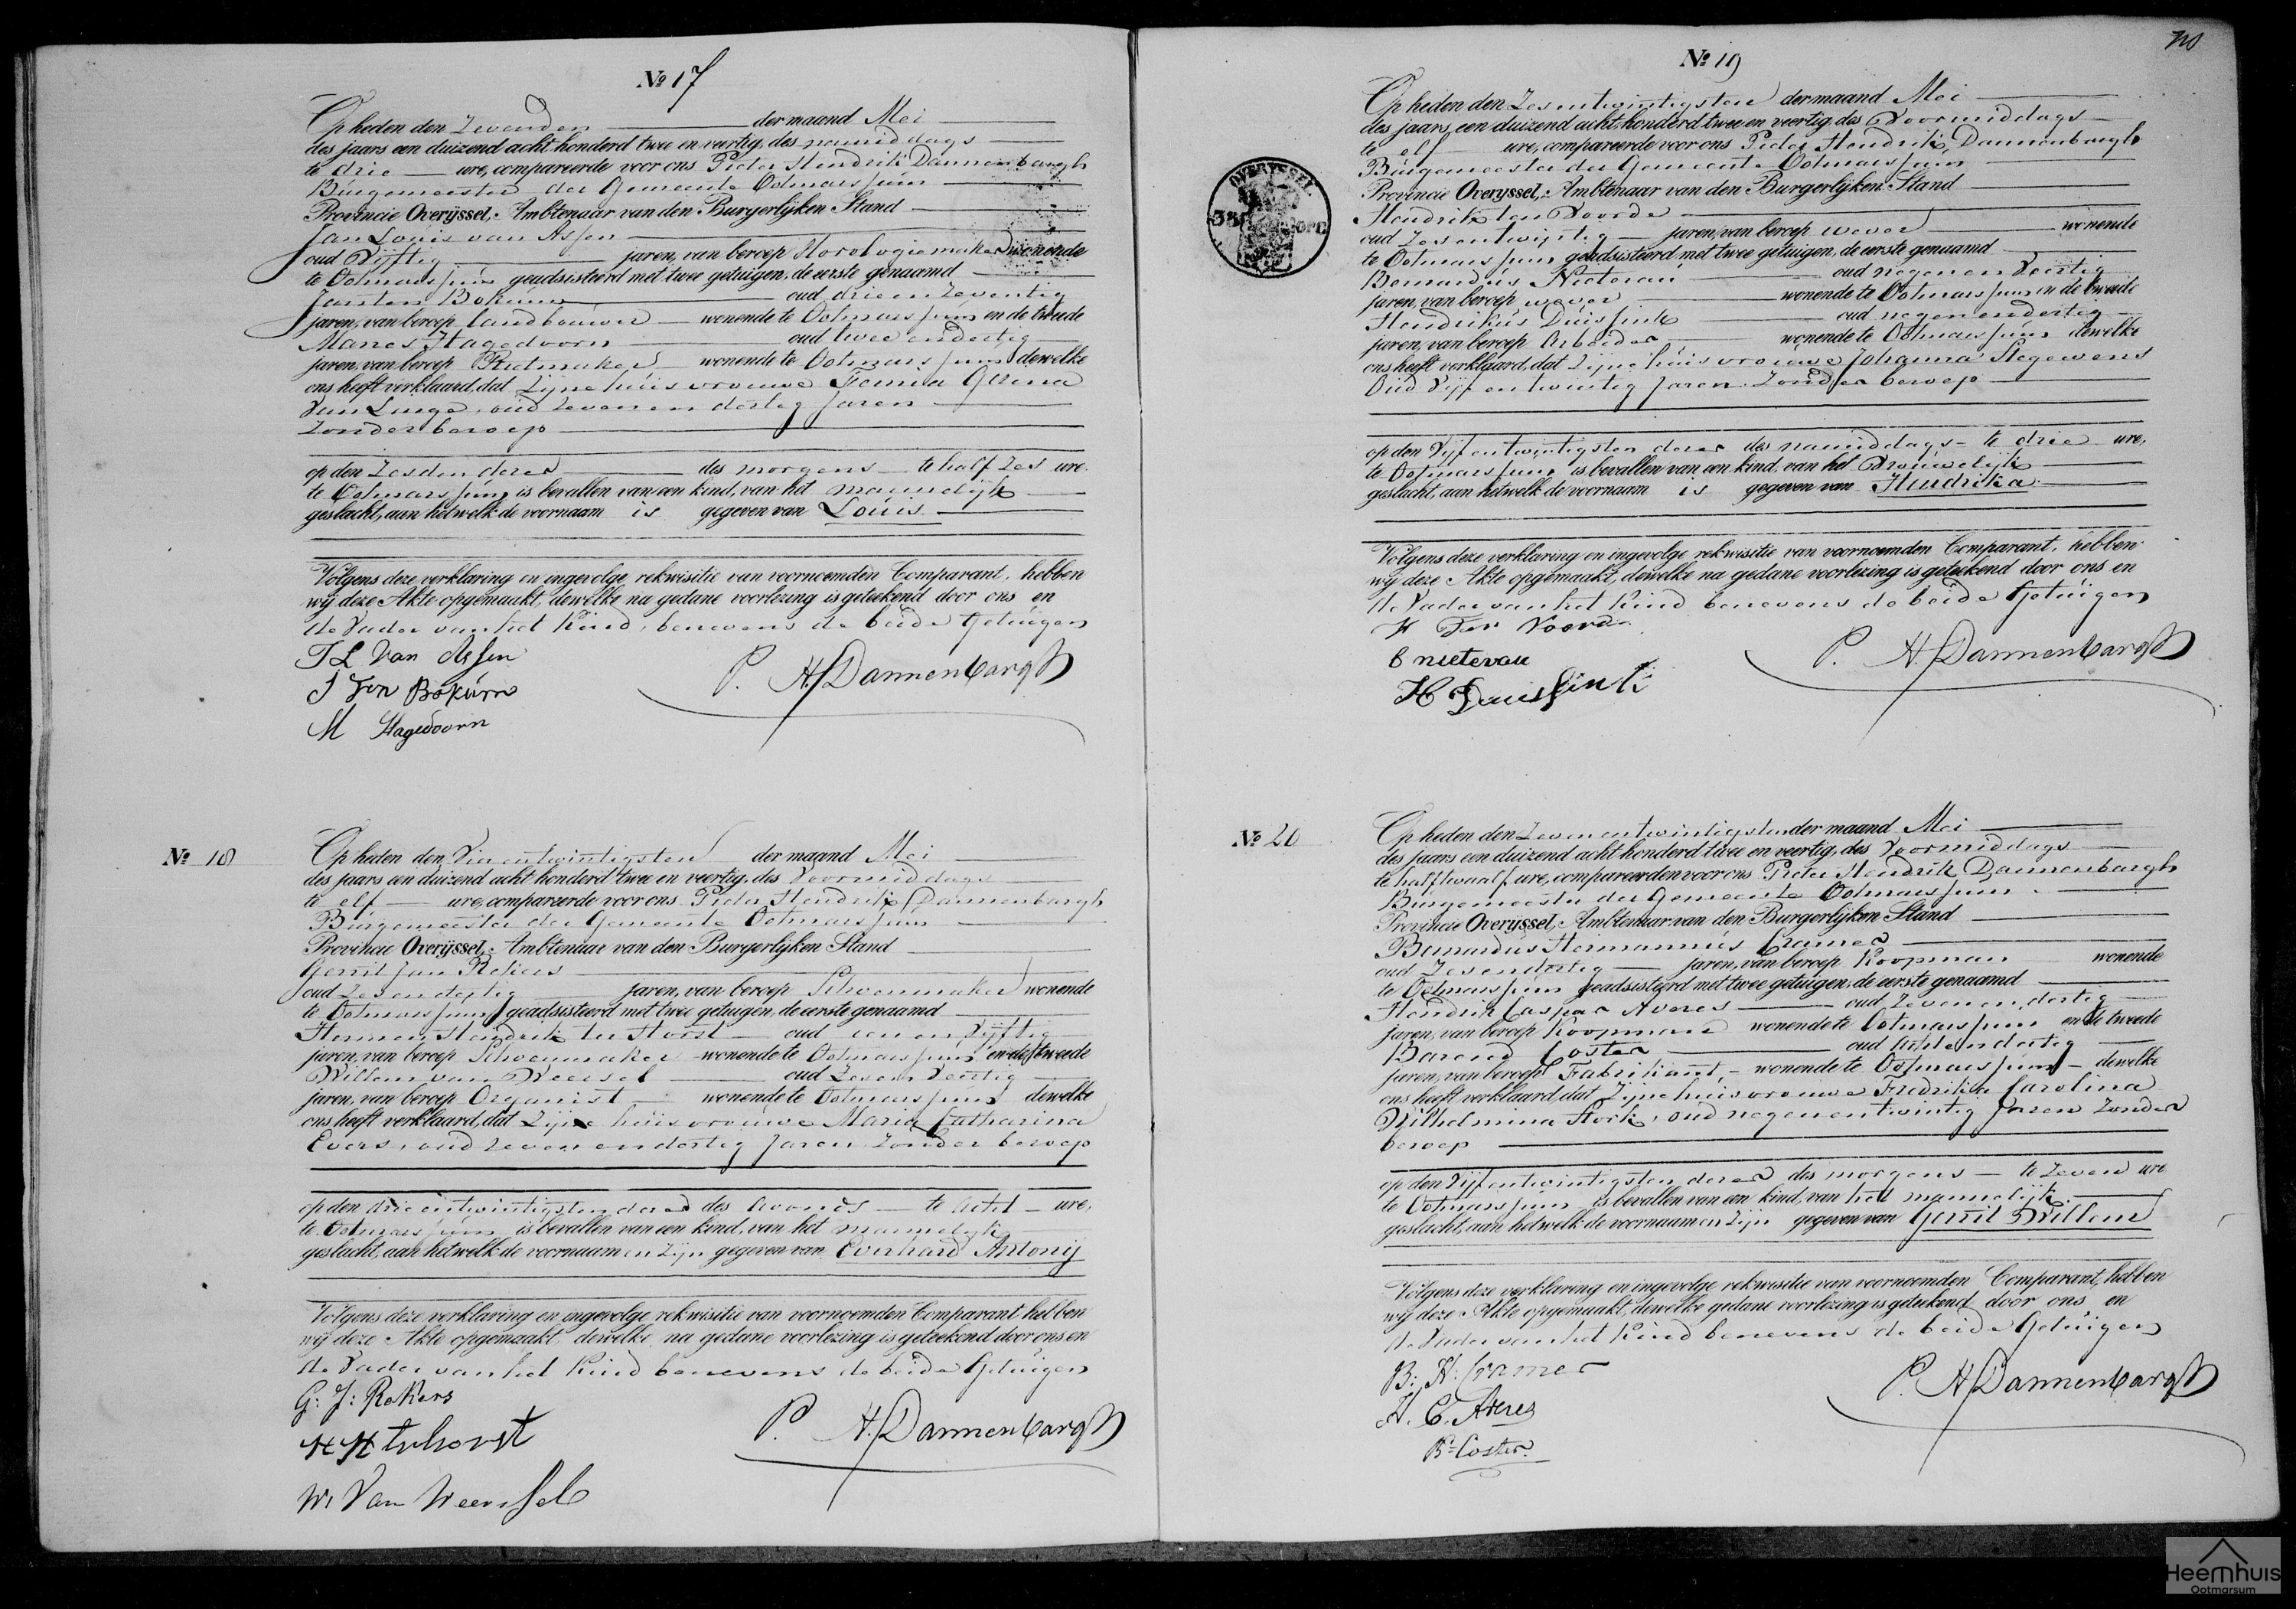 No 17
Op heden den Zevenden der maand Mei
des jaars een duizend acht honderd twee en veertig, des namiddags
te drie ure, compareerde voor ons Pieter Hendrik Dannenbargh
Burgemeester der Gemeente Ootmarssum
Provincie Overijssel, Ambtenaar van den Burgerlijken Stand
Jan Louis van Assen
oud Vijftig jaren, van beroep Horologiemaker wonende
te Ootmarssum geadsisteerd met twee getuigen, de eerste genaamd
Jan ten Bokum oud drie en Zeventig
jaren, van beroep landbouwer wonende te Ootmarssum en de tweede
Manes Hagedoorn oud twee endertig
jaren, van beroep Rietmaker wonende te Ootmarssum dewelke
ons heeft verklaard, dat Zijne huisvrouwe Femia Gesina
Van Linge, oud Zeven en dertig Jaren
Zonder beroep
op den Zesden dezer des morgens te half Zes ure.
te Ootmarssum is bevallen van een kind, van het mannelijk
geslacht, aan hetwelk de voornaam is gegeven van Louis
Volgens deze verklaring en ingevolge rekwisitie van voornoemden Comparant, hebben
wij deze Akte opgemaakt, dewelke na gedane voorlezing is geteekend door ons en
de Vader van het Kind, benevens de beide Getuigen
J L Van Assen
J Ten Bokum
M Hagedoorn
P. H. Dannenbargh
No 18
Op heden den Vierentwintigsten der maand Mei
des jaars een duizend acht honderd twee en veertig, des Voormiddags
te elf ure, compareerde voor ons Pieter Hendrik Dannenbargh
Burgemeester der Gemeente Ootmarssum
Provincie Overijssel, Ambtenaar van den Burgerlijken Stand
Gerrit Jan Rekers
oud Zesendertig jaren, van beroep Schoenmaker wonende
te Ootmarssum geadsisteerd met twee getuigen, de eerste genaamd
Hermen Hendrik ter Horst oud een en Vijftig
jaren, van beroep Schoenmaker wonende te Ootmarssum en de tweede
Willem van Weersel oud Zesen Veertig
jaren, van beroep Organist wonende te Ootmarssum dewelke
ons heeft verklaard, dat Zijne huisvrouwe Maria Catharina
Evers, oud Zeven en dertig Jaren Zonder beroep
op den drieentwintigsten dezer des Avonds te Acht ure,
te Ootmarssum is bevallen van een kind, van het mannelijk
geslacht, aan hetwelk de voornaamen Zijn gegeven van Everhard Antonij
Volgens deze verklaring en ingevolge rekwisitie van voornoemden Comparant hebben
wij deze Akte opgemaakt, dewelke na gedane voorlezing is geteekend door ons en
de Vader van het Kind benevens de beide Getuigen
G: J: Rekers
H H terhorst
W. Van Weersel
P. H. Dannenbargh
20
No 19
Op heden den Zesentwintigsten der maand Mei
des jaars een duizend acht honderd twee en veertig, des Voormiddags
te elf ure, compareerde voor ons Pieter Hendrik Dannenbargh
Burgemeester der Gemeente Ootmarssum
Provincie Overijssel, Ambtenaar van den Burgerlijken Stand
Hendrik ten Voorde
oud Zesentwintig jaren, van beroep wever wonende
te Ootmarssum geadsisteerd met twee getuigen, de eerste genaamd
Bernardus Nieterau oud negen en Veertig
jaren, van beroep wever wonende te Ootmarssum en de tweede
Hendrikus Duissink oud negen endertig
jaren, van beroep Arbeider wonende te Ootmarssum dewelke
ons heeft verklaard, dat Zijne huisvrouwe Johanna Stegewens
Oud Vijf entwintig Jaren Zonder beroep
op den Vijfentwintigsten dezer des namiddags te drie ure,
te Ootmarssum is bevallen van een kind, van het Vrouwelijk
geslacht, aan hetwelk de voornaam is gegeven van Hendrika
Volgens deze verklaring en ingevolge rekwisitie van voornoemden Comparant, hebben
wij deze Akte opgemaakt, dewelke na gedane voorlezing is geteekend door ons en
de Vader van het Kind benevens de beide Getuigen
H Ten Voorde
B nieterau
H Duissink
P. H. Dannenbargh
OVERYSSEL
No 20
Op heden den Zevenentwintigsten der maand Mei
des jaars een duizend acht honderd twee en veertig, des Voormiddags
te half twaalf ure, compareerden voor ons Pieter Hendrik Dannenbargh
Burgemeester der Gemeente Ootmarssum
Provincie Overijssel, Ambtenaar van den Burgerlijken Stand
Bernardus Hermannus Cramer
oud Zesendertig jaren, van beroep Koopman wonende
te Ootmarssum geadsisteerd met twee getuigen, de eerste genaamd
Hendrik Caspar Averes oud Zevenendertig
jaren, van beroep Koopman wonende te Ootmarssum en de tweede
Barend Coster oud Achtendertig
jaren, van beroep Fabrikant, wonende te Ootmarssum dewelke
ons heeft verklaard, dat Zijne huisvrouwe Fredrika Carolina
Wilhelmina Stork, oud negenentwintig Jaren Zonder
beroep
op den Vijfentwintigsten dezer des morgens te Zeven ure
te Ootmarssum is bevallen van een kind, van het mannelijk
geslacht, aan hetwelk de voornaamen Zijn gegeven van Gerrit Willem
Volgens deze verklaring en ingevolge rekwisitie van voornoemden Comparant, hebben
wij deze Akte opgemaakt, dewelke gedane voorlezing is geteekend door ons, en
de Vader van het Kind benevens de beide Getuigen
B: H: Cramer
H. C. Averes
B. Coster
P. H. Dannenbargh
Heemhuis
Ootmarsum